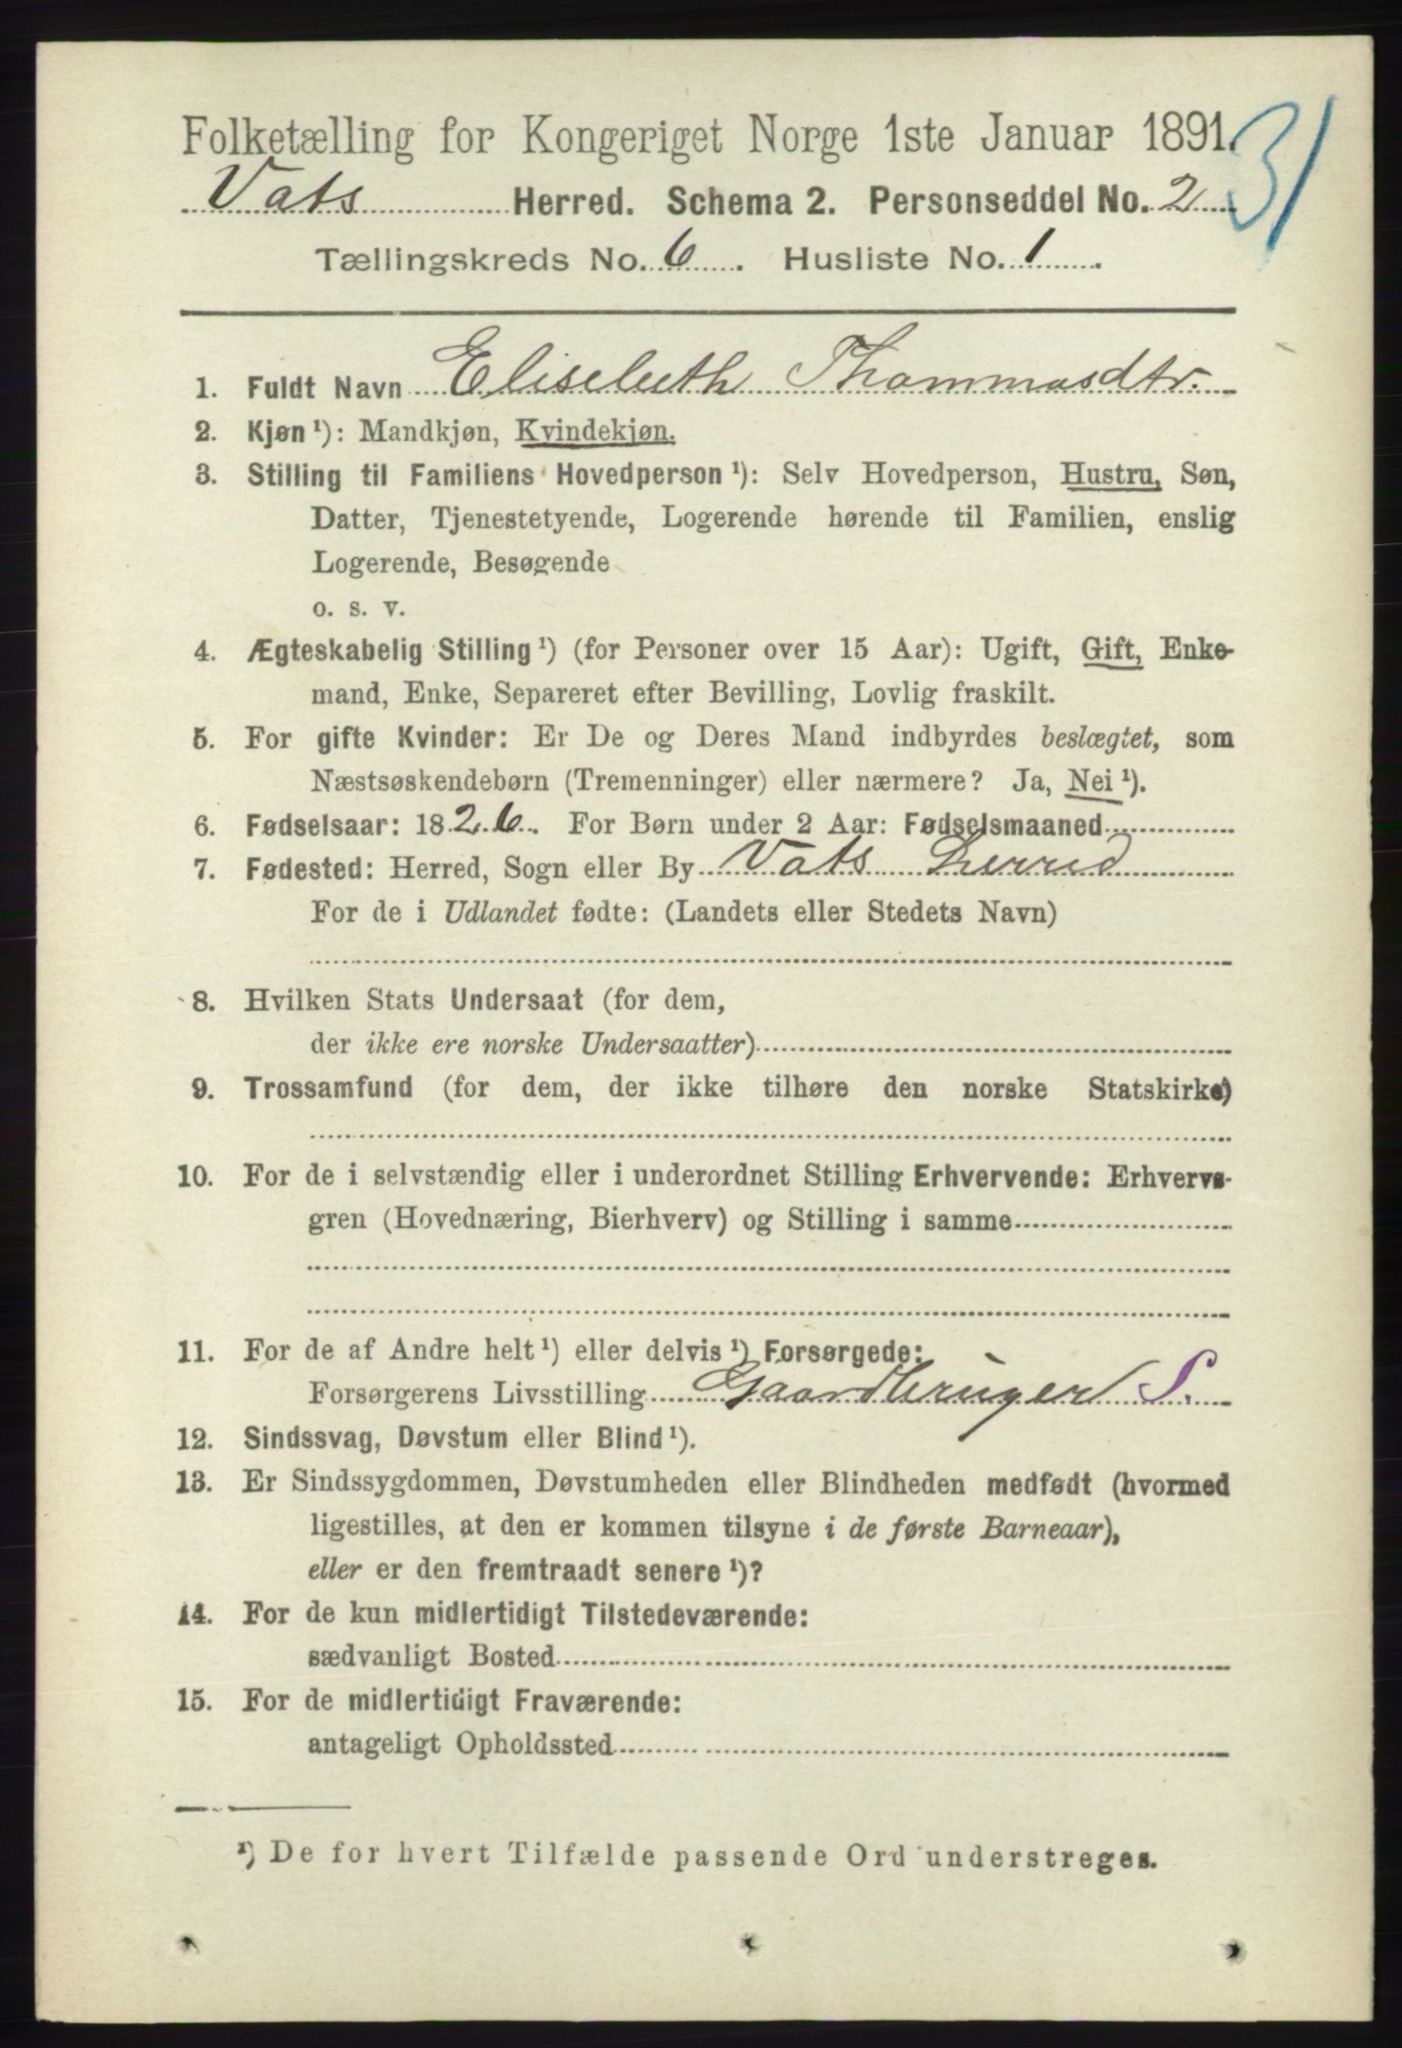 Folketælling for Kongeriget Norge 1ste Januar 1891.
31
Vats Herred. Schema 2. Personseddel No. 2
Tællingskreds No. 6. Husliste No. 1.
1. Fuldt Navn Elisebeth Thommasdtr.
2. Kjøn ¹): Mandkjøn, Kvindekjøn.
3. Stilling til Familiens Hovedperson ¹): Selv Hovedperson, Hustru, Søn,
Datter, Tjenestetyende, Logerende hørende til Familien, enslig
Logerende, Besøgende
o. s. v.
4. Ægteskabelig Stilling ¹) (for Personer over 15 Aar): Ugift, Gift, Enke-
mand, Enke, Separeret efter Bevilling, Lovlig fraskilt.
5. For gifte Kvinder: Er De og Deres Mand indbyrdes beslægtet, som
Næstsøskendebørn (Tremenninger) eller nærmere? Ja, Nei ¹).
6. Fødselsaar: 1826. For Børn under 2 Aar: Fødselsmaaned
7. Fødested: Herred, Sogn eller By Vats Herred
For de i Udlandet fødte: (Landets eller Stedets Navn)
8. Hvilken Stats Undersaat (for dem,
der ikke ere norske Undersaatter)
9. Trossamfund (for dem, der ikke tilhøre den norske Statskirke)
10. For de i selvstændig eller i underordnet Stilling Erhvervende: Erhvervs-
gren (Hovednæring, Bierhverv) og Stilling i samme
11. For de af Andre helt ¹) eller delvis ¹) Forsørgede:
Forsørgerens Livsstilling Gaardbruger S.
12. Sindssvag, Døvstum eller Blind ¹).
13. Er Sindssygdommen, Døvstumheden eller Blindheden medfødt (hvormed
ligestilles, at den er kommen tilsyne i de første Barneaar),
eller er den fremtraadt senere ¹)?
14. For de kun midlertidigt Tilstedeværende:
sædvanligt Bosted
15. For de midlertidigt Fraværende:
antageligt Opholdssted
¹) De for hvert Tilfælde passende Ord understreges.